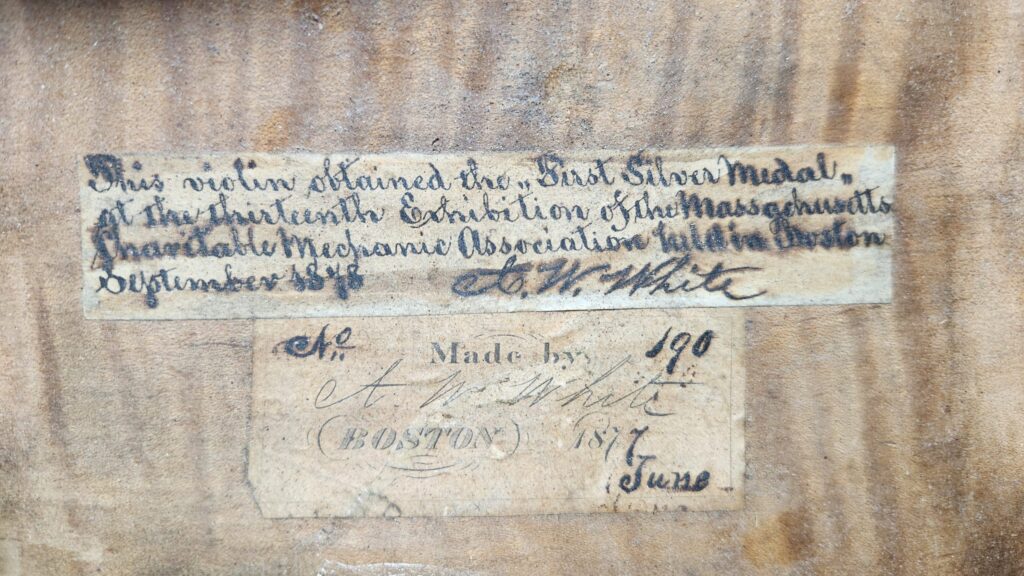 This violin obtained the „First Silver Medal„
at the thirteenth Exhibition of the Massachusetts
Charitable Mechanic Association held in Boston
September 1878 A. W. White
No. Made by 190
A. W. White
BOSTON 1877
June